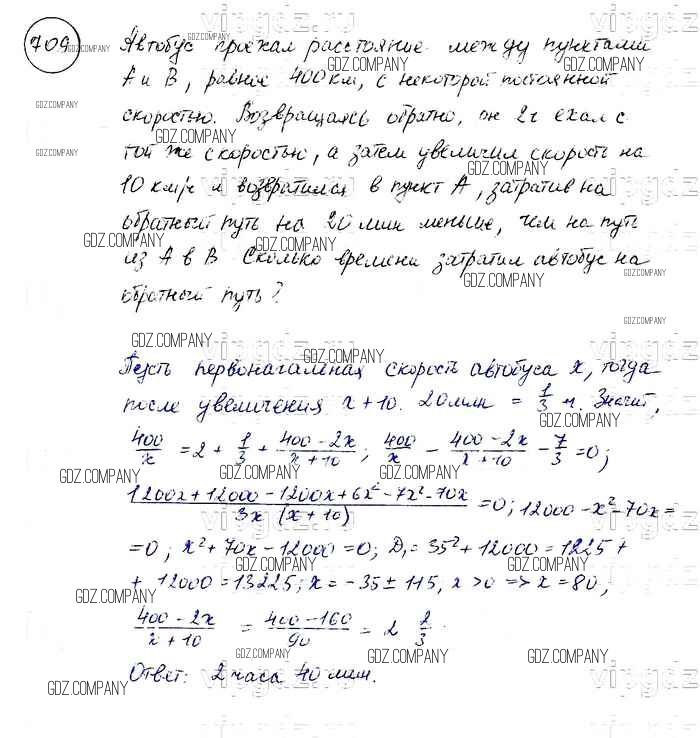 709 Автобус проехал расстояние между пунктами
А и В, равное 400 км, с некоторой постоянной
скоростью. Возвращаясь обратно, он 2 ч ехал с
той же скоростью, а затем увеличил скорость на
10 км/ч и возвратился в пункт А, затратив на
обратный путь на 20 мин меньше, чем на путь
из А в В. Сколько времени затратил автобус на
обратный путь?
Пусть первоначальная скорость автобуса x, тогда
после увеличения x+10. 20 мин = 1/3 ч. Значит,
400/x = 2 + 1/3 + (400-2x)/(x+10); 400/x - (400-2x)/(x+10) - 7/3 = 0;
(1200x+12000-1200x+6x²-7x²-70x)/(3x(x+10)) = 0; 12000-x²-70x =
= 0; x²+70x-12000=0; D₁=35²+12000=1225+
+ 12000=13225; x=-35±115, x>0 => x=80,
(400-2x)/(x+10) = (400-160)/90 = 2 2/3
Ответ: 2 часа 40 мин.
GDZ.COMPANY
vipgdz.ru